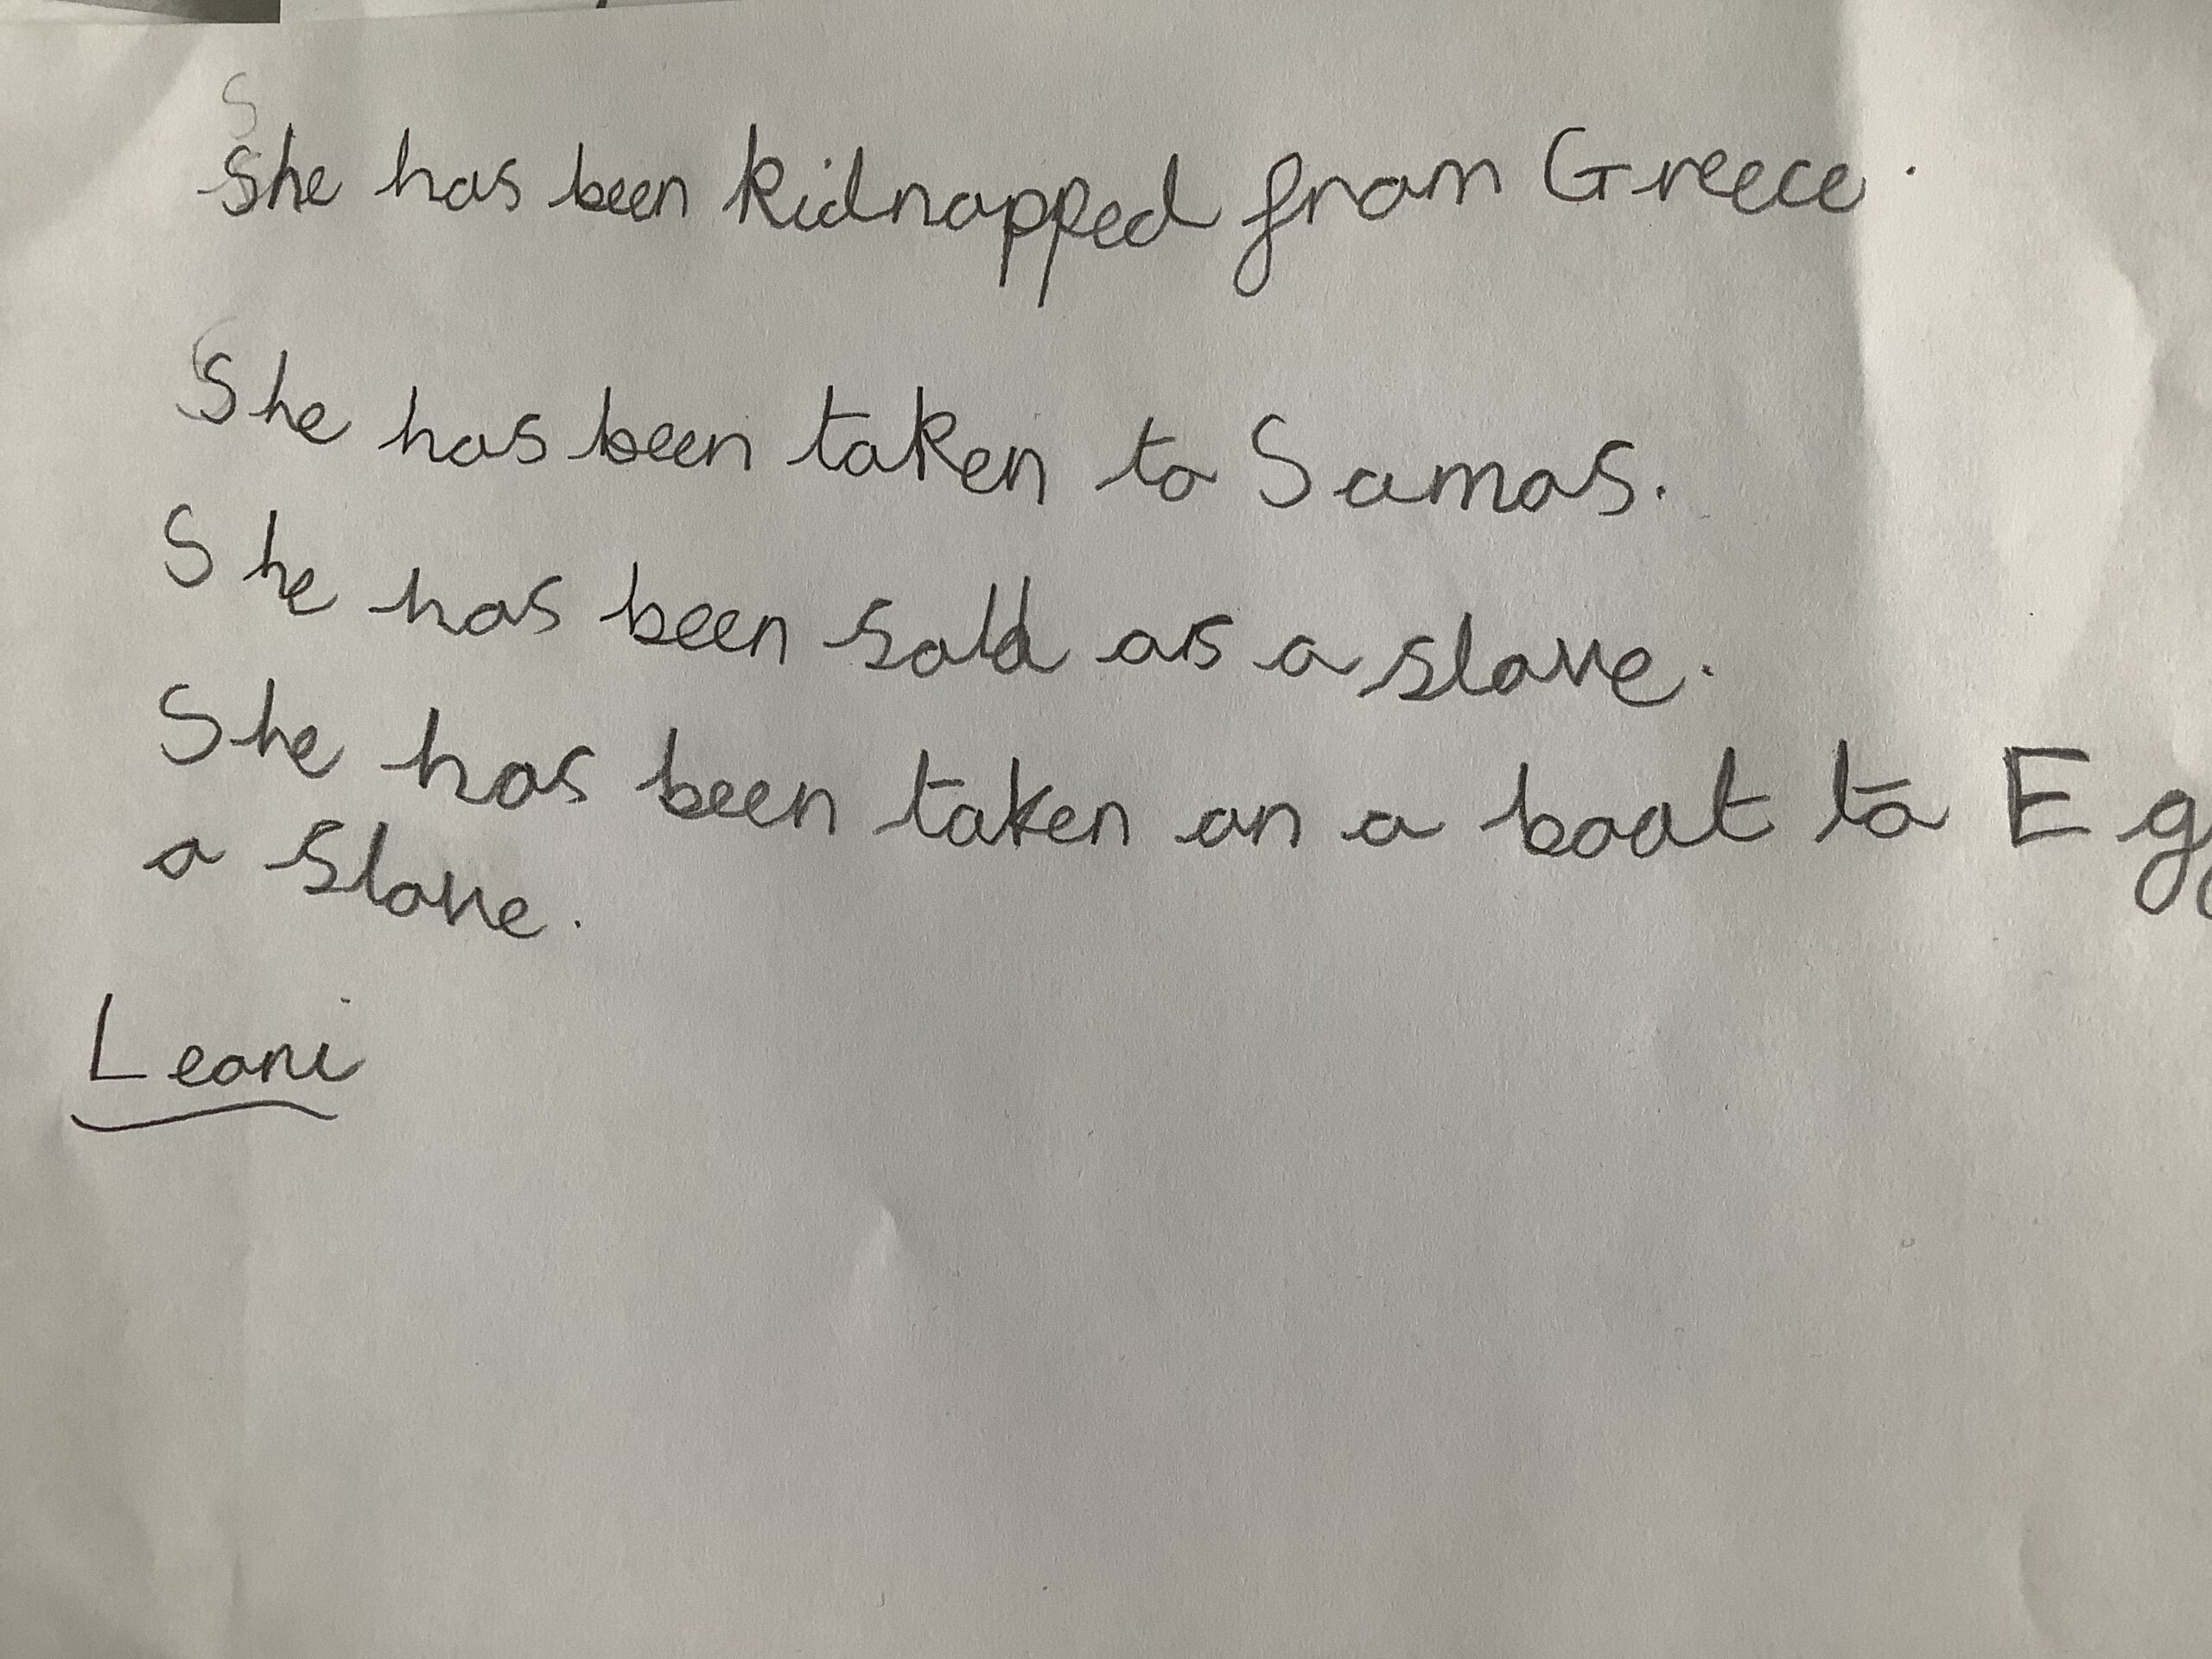 She has been kidnapped from Greece.
She has been taken to Samos.
She has been sold as a slave.
She has been taken on a boat to Eg
a slave.
Leoni